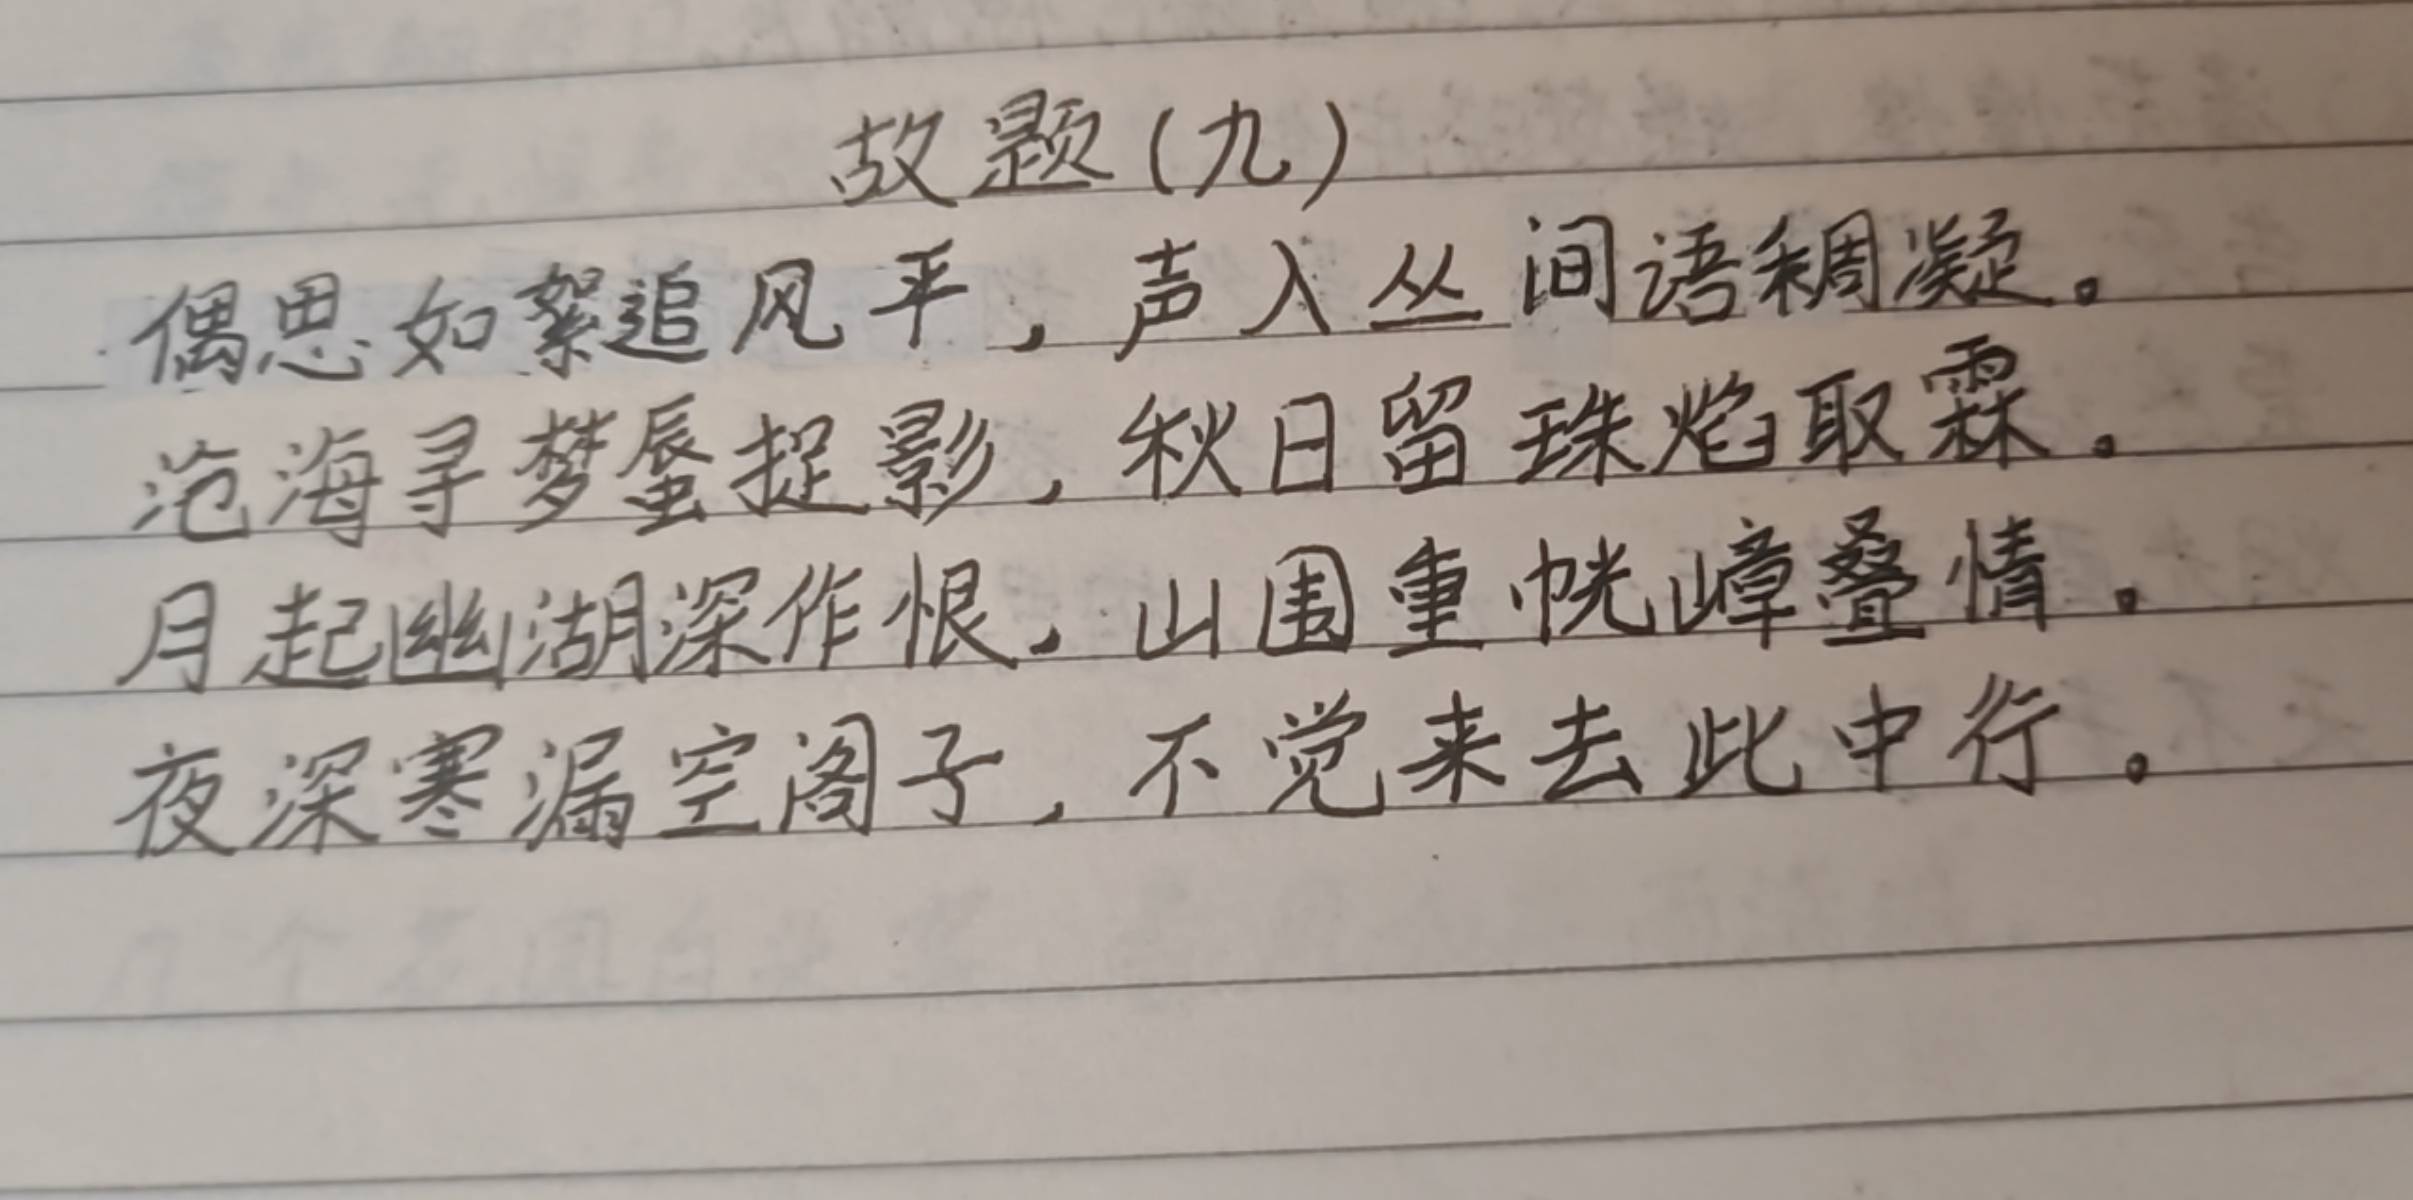 故题(九)
偶思如絮追风平，声入丛间语稠凝。
沧海寻梦蜃捉影，秋日留珠焰取霖。
月起幽湖深作恨，山围重恍嶂叠情。
夜深寒漏空阁子，不觉来去此中行。